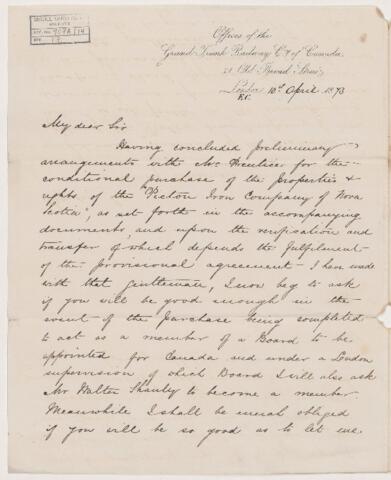 McGILL UNIVERSITY
ARCHIVES
ACC. NO. 909A/14
REF. 17
Offices of the
Grand Trunk Railway Co. of Canada
21 Old Broad Street
London 10th April 1873
E.C.
My dear Sir
Having concluded preliminary
arrangements with Mr Prentice for the
conditional purchase of the properties &
rights of the "Pictou Iron Company of Nova
Scotia", as set forth in the accompanying
documents, and upon the verification and
transfer of which depends the fulfilment
of the provisional agreement I have made
with that gentleman, I now beg to ask
if you will be good enough in the
event of the purchase being completed
to act as a member of a Board to be
appointed for Canada and under a London
supervision of which Board I will also ask
Mr Walter Shanly to become a member.
Meanwhile I shall be much obliged
if you will be so good as to let me